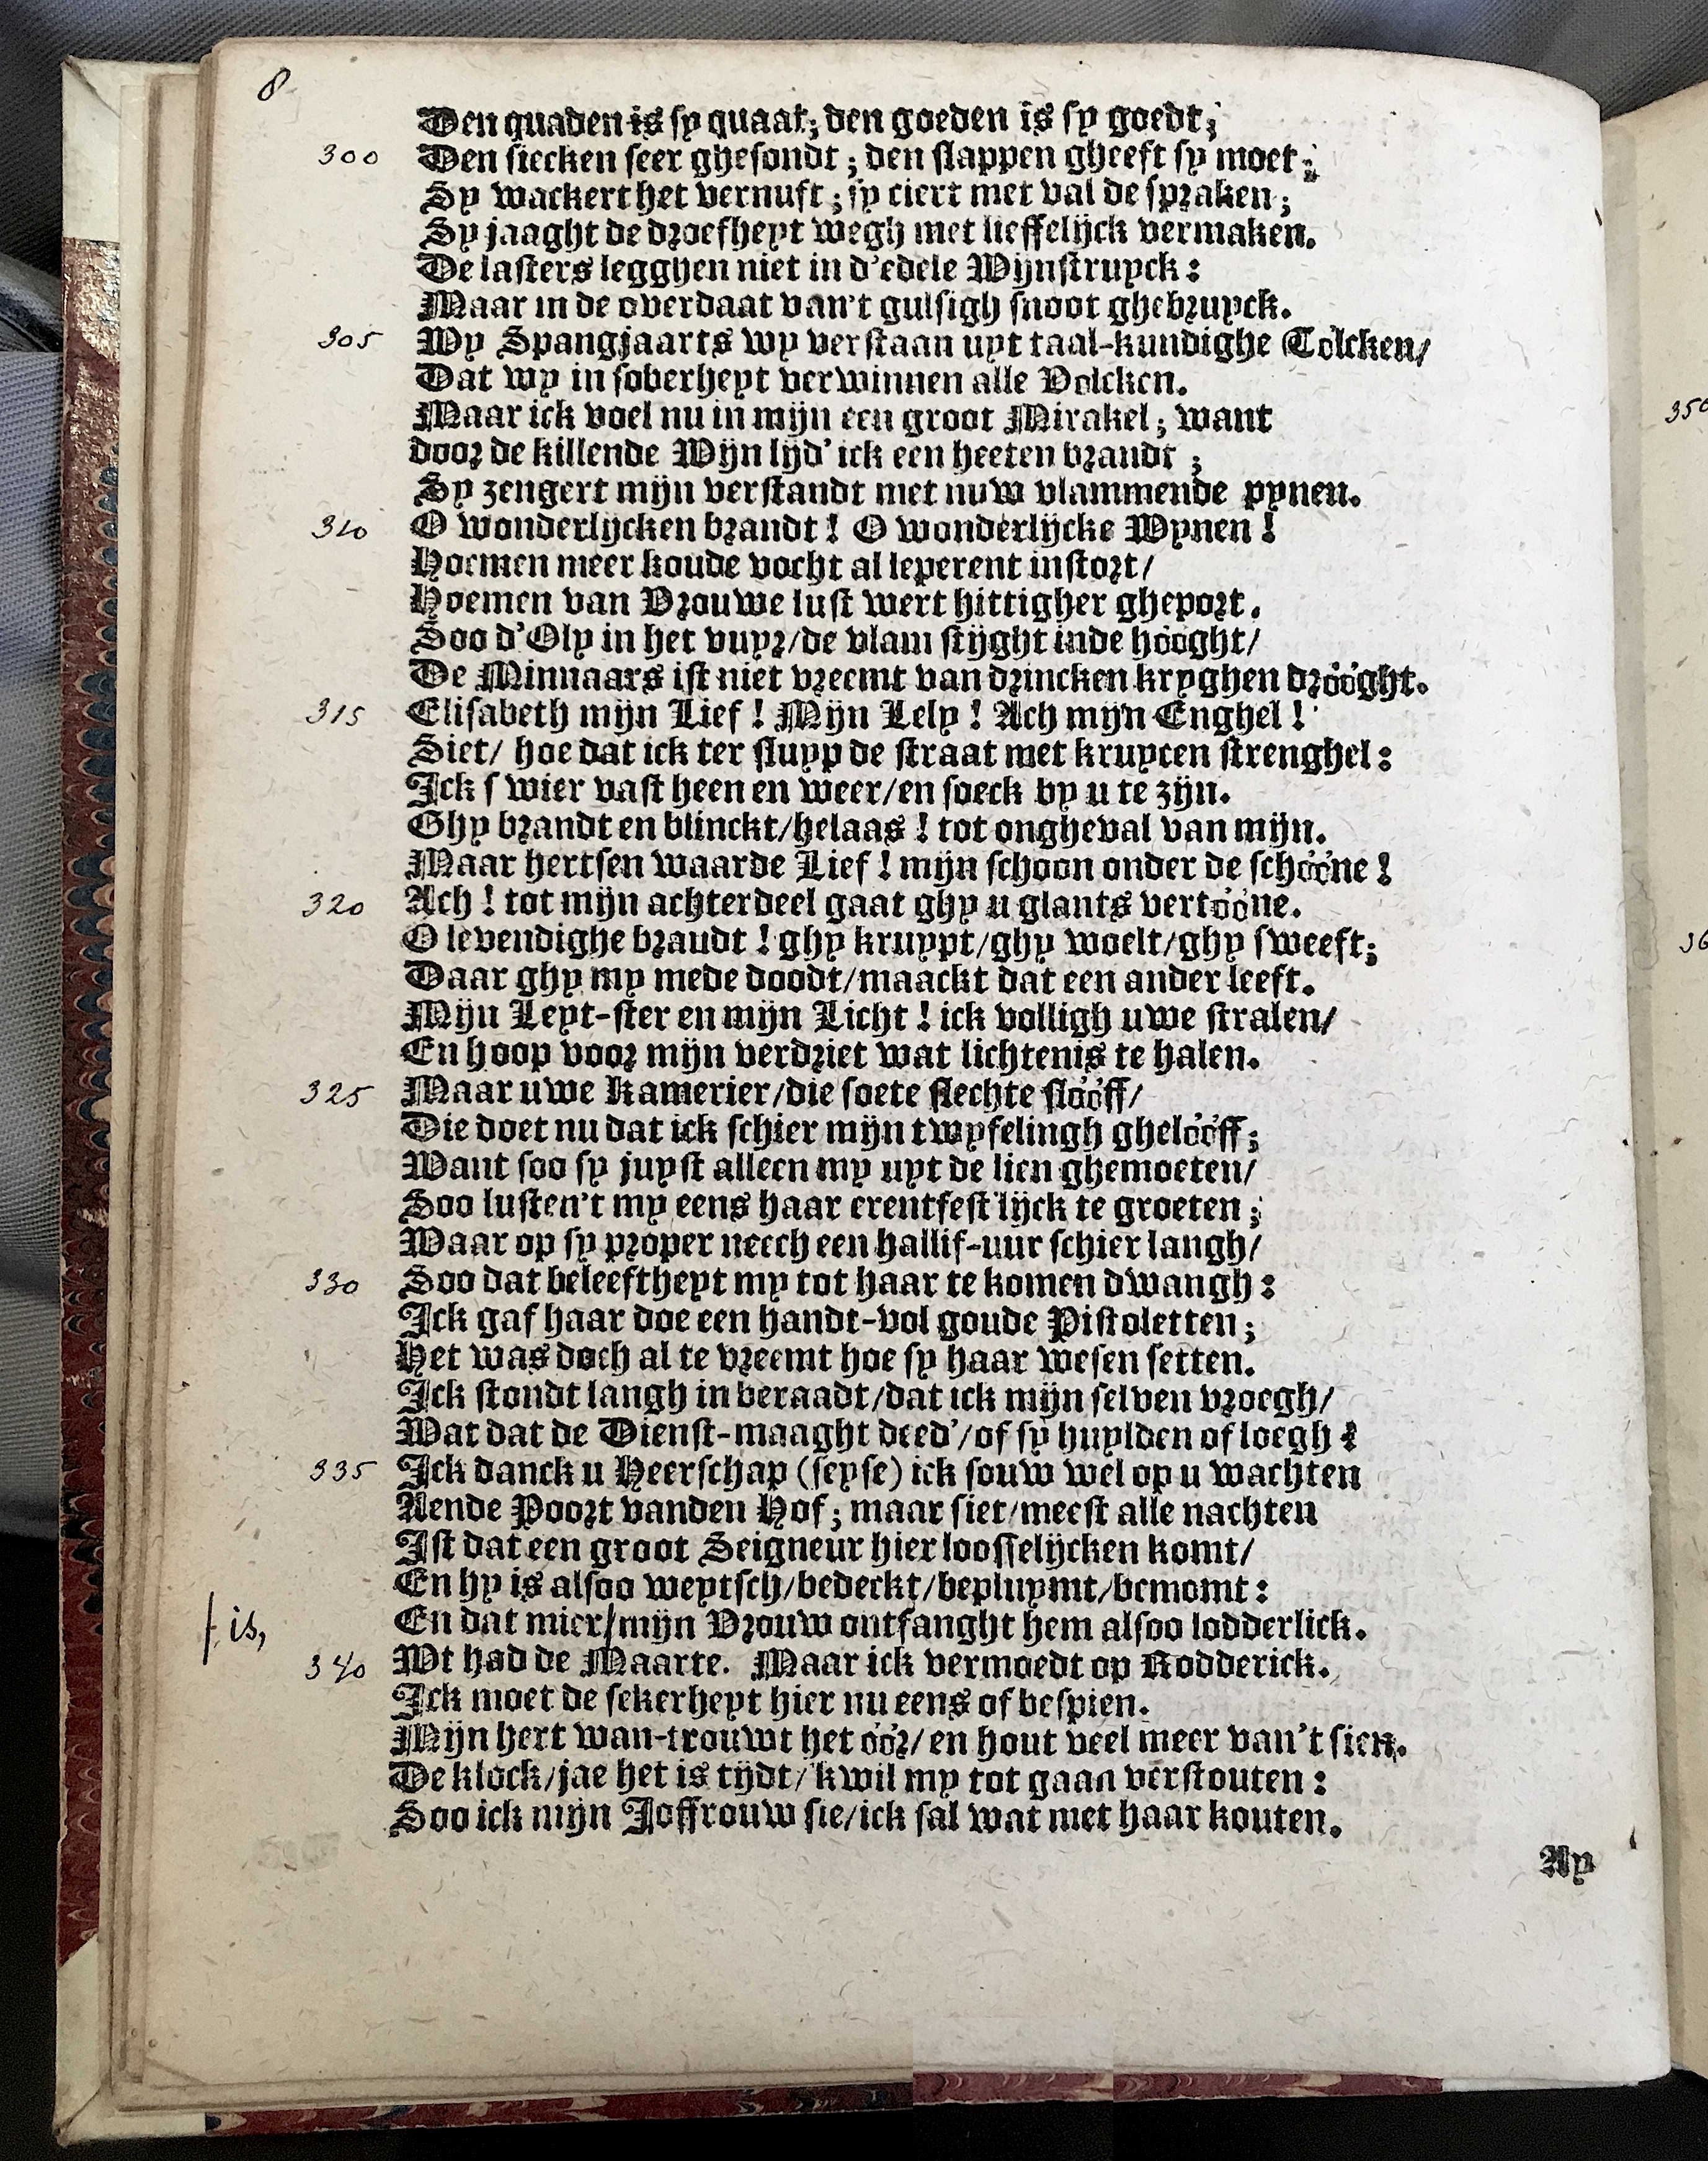 8
Den quaden is sy quaat; den goeden is sy goedt;
300 Den siecken seer ghesondt; den slappen gheeft sy moet;
Sy wackert het vernuft; sy ciert met val de spraken;
Sy jaaght de droefheyt wegh met lieffelijck vermaken.
De lasters legghen niet in d'edele Wijnstruyck:
Maar in de overdaat van't gulsigh snoot ghebruyck.
305 Wy Spangjaarts wy verstaan uyt taal-kundighe Tolcken/
Dat wy in soberheyt verwinnen alle Volcken.
Maar ick voel nu in mijn een groot Mirakel; want
door de killende Wijn lijd' ick een heeten brandt;
Sy zengert mijn verstandt met nuw vlammende pynen.
310 O wonderlijcken brandt! O wonderlijcke Wynen!
Hoemen meer koude vocht al leperent instort/
Hoemen van Vrouwe lust wert hittigher gheport.
Soo d'Oly in het vuyr/de vlam stijght inde hóoght/
De Minnaars ist niet vreemt van drincken kryghen dróóght.
315 Elisabeth mijn Lief! Mijn Lely! Ach mijn Enghel!
Siet/ hoe dat ick ter sluyp de straat met kruycen strenghel:
Ick swier vast heen en weer/en soeck by u te zijn.
Ghy brandt en blinckt/helaas! tot ongheval van mijn.
Maar hertsen waarde Lief! mijn schoon onder de schóóne!
320 Ach! tot mijn achterdeel gaat ghy u glants vertóóne.
O levendighe braudt! ghy kruypt/ghy woelt/ghy sweeft;
Daar ghy my mede doodt/maackt dat een ander leeft.
Mijn Leyt-ster en mijn Licht! ick volligh uwe stralen/
En hoop voor mijn verdriet wat lichtenis te halen.
325 Maar uwe Kamerier/die soete slechte slóóff/
Die doet nu dat ick schier mijn twyfelingh ghelóóff;
Want soo sy juyst alleen my uyt de lien ghemoeten/
Soo lusten't my eens haar erentfestlijck te groeten;
Waar op sy proper neech een hallif-uur schier langh/
330 Soo dat beleeftheyt my tot haar te komen dwangh:
Ick gaf haar doe een handt-vol goude Pistoletten;
Het was doch al te vreemt hoe sy haar wesen setten.
Ick stondt langh in beraadt/dat ick mijn selven vroegh/
Wat dat de Dienst-maaght deed'/of sy huylden of loegh?
335 Ick danck u Heerschap (seyse) ick souw wel op u wachten
Aende Poort vanden Hof; maar siet/meest alle nachten
Ist dat een groot Seigneur hier loosselijcken komt/
En hy is alsoo weytsch/bedeckt/bepluymt/bemomt:
/ is, En dat mier/mijn Vrouw ontfanght hem alsoo lodderlick.
340 Wt had de Maarte. Maar ick vermoedt op Rodderick.
Ick moet de sekerheyt hier nu eens of bespien.
Mijn hert wan-trouwt het óór/ en hout veel meer van't sien.
De klock/jae het is tijdt/'kwil my tot gaan verstouten:
Soo ick mijn Joffrouw sie/ick sal wat met haar kouten.
Ay
350
36